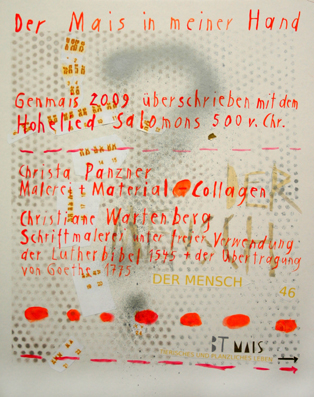 Der Mais in meiner Hand
Genmais 2009 überschrieben mit dem
Hohelied Salomons 500 v. Chr.
Christa Panzner
Malerei + Material-Collagen
DER
Christiane Wartenberg
MENSCH
Schriftmalerei unter freier Verwendung
der Lutherbibel 1545 + der Übertragung
von Goethe 1775.
DER MENSCH
46
BT MAIS
TIERISCHES UND PFLANZLICHES LEBEN